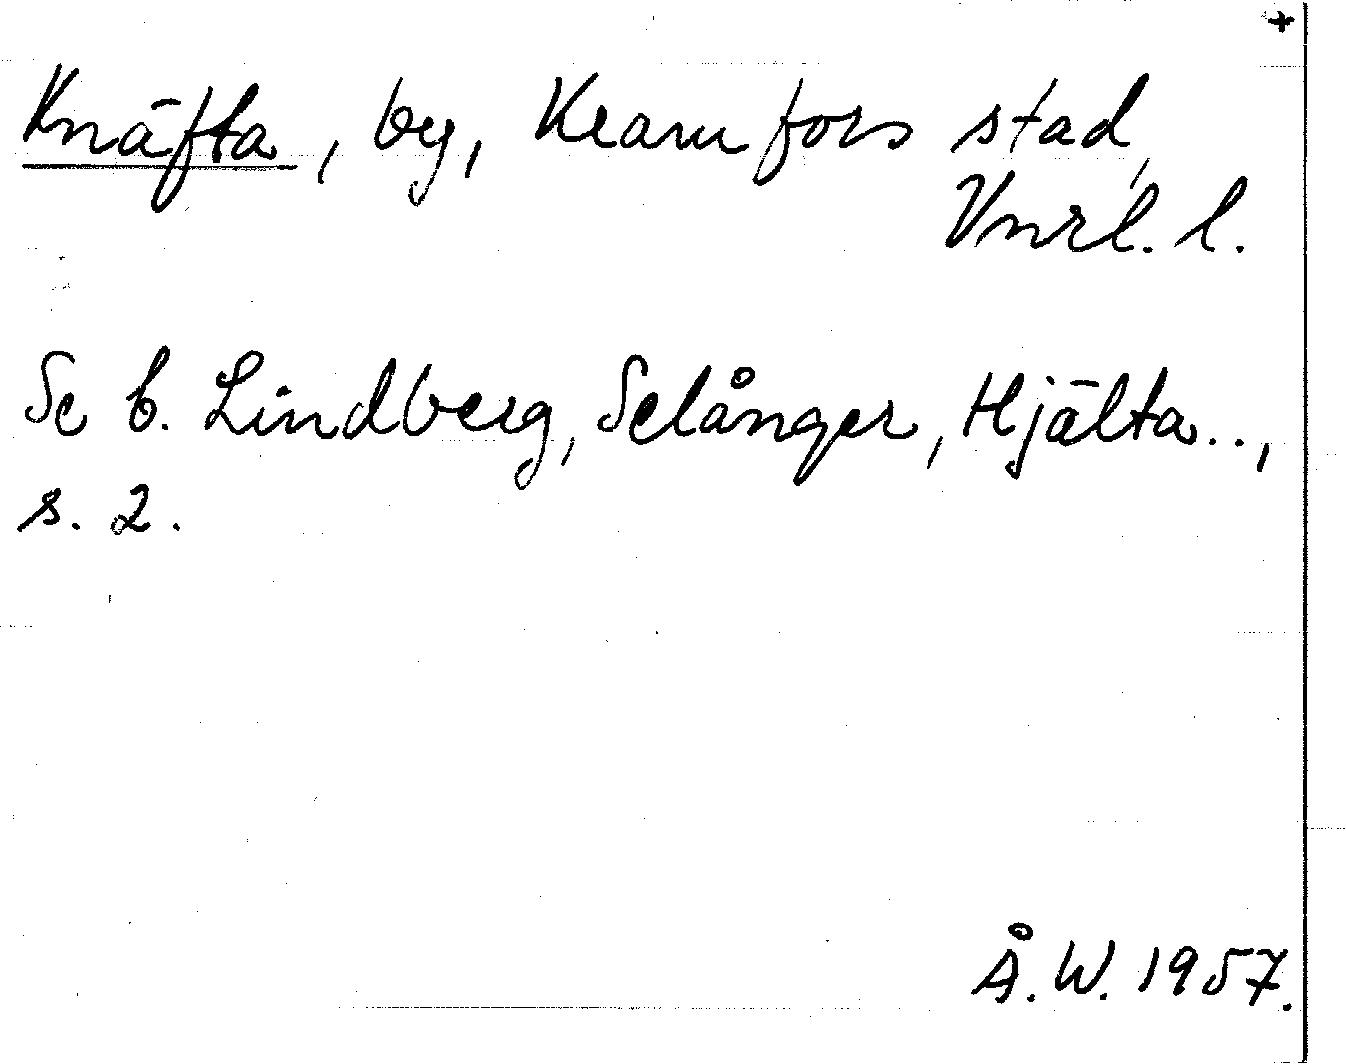 +
Knäfta, by, Kramfors stad,
Vnrl. l.
Se b. Lindberg, Selånger, Hjälta..,
s. 2.
Å. W. 1957.